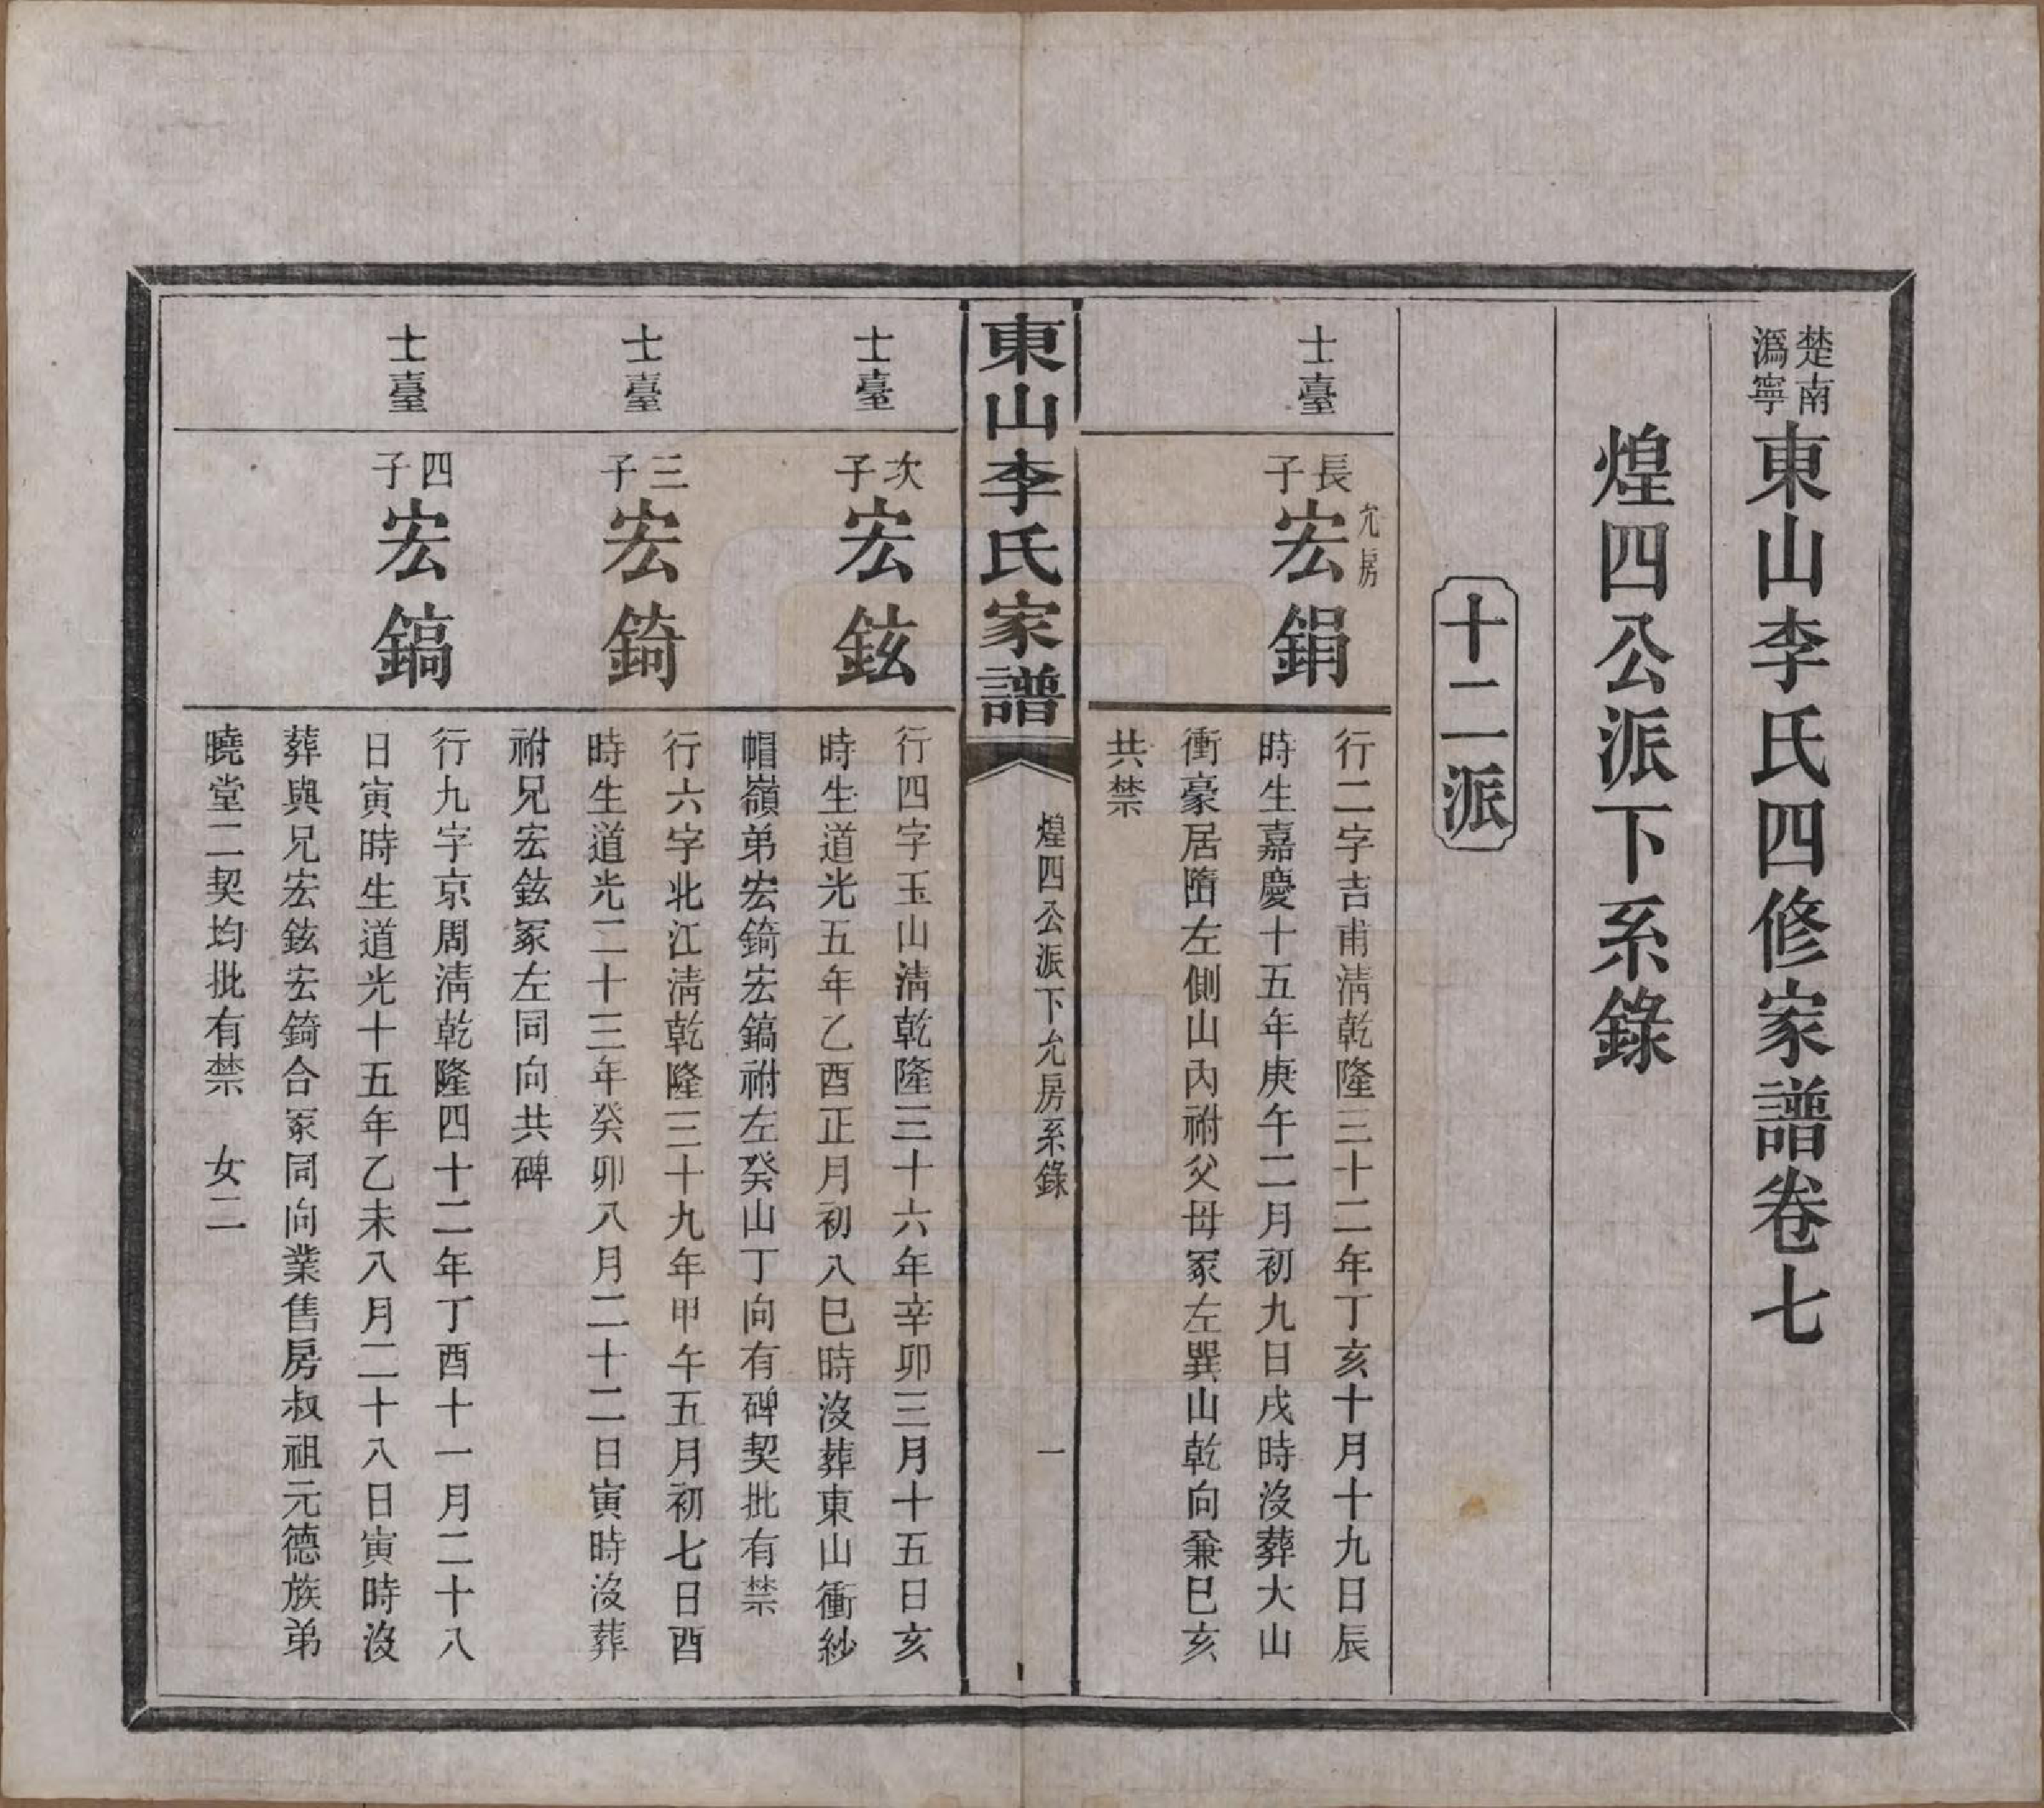 楚南
潙寧
東山李氏四修家譜卷七
煌四公派下系錄
十二派
士臺
長子
允房
宏鋗
行二字吉甫淸乾隆三十二年丁亥十月十九日辰
時生嘉慶十五年庚午二月初九日戌時沒葬大山
衝豪居㬷左側山內祔父母冡左巽山乾向兼巳亥
共禁
東山李氏家譜
煌四公派下允房系錄
一
士臺
次子
宏鉉
行四字玉山淸乾隆三十六年辛卯三月十五日亥
時生道光五年乙酉正月初八巳時沒葬東山衝紗
帽嶺弟宏錡宏鎬祔左癸山丁向有碑契批有禁
士臺
三子
宏錡
行六字北江淸乾隆三十九年甲午五月初七日酉
時生道光二十三年癸卯八月二十二日寅時沒葬
祔兄宏鉉冡左同向共碑
士臺
四子
宏鎬
行九字京周淸乾隆四十二年丁酉十一月二十八
日寅時生道光十五年乙未八月二十八日寅時沒
葬與兄宏鉉宏錡合冡同向業售房叔祖元德族弟
曉堂二契均批有禁　女二